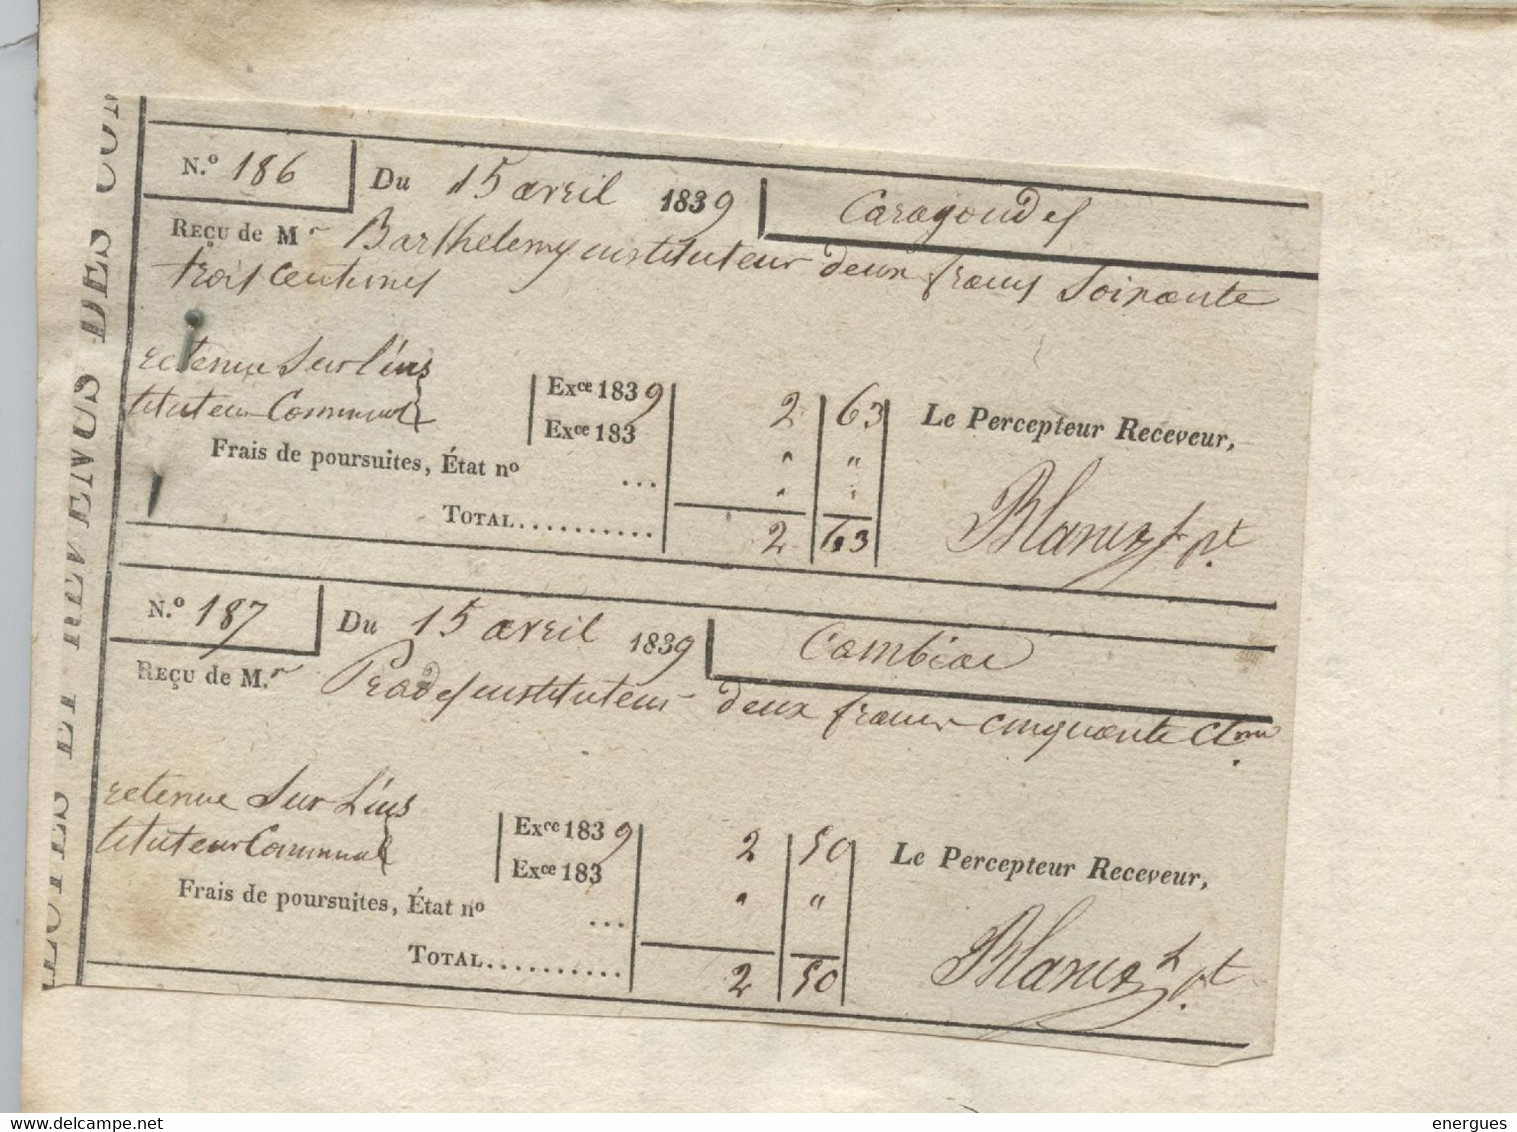 N.º 186 Du 15 avril 1839 Caragoudes
Reçu de Mr Barthelemy instituteur deux francs soixante
trois centimes
retenue sur l'ins
tituteur Communal
Exce 1839 2 63
Exce 183 " "
Frais de poursuites, État nº ...
Total........... 2 63
Le Percepteur Receveur,
N.º 187 Du 15 avril 1839 Cambiac
Reçu de M.r Prades instituteur deux francs cinquante
retenue sur l'ins
tituteur Communal
Exce 1839 2 50
Exce 183 " "
Frais de poursuites, État nº ...
Total........... 2 50
Le Percepteur Receveur,
ET REVENUS DES
energues
delcampe.net